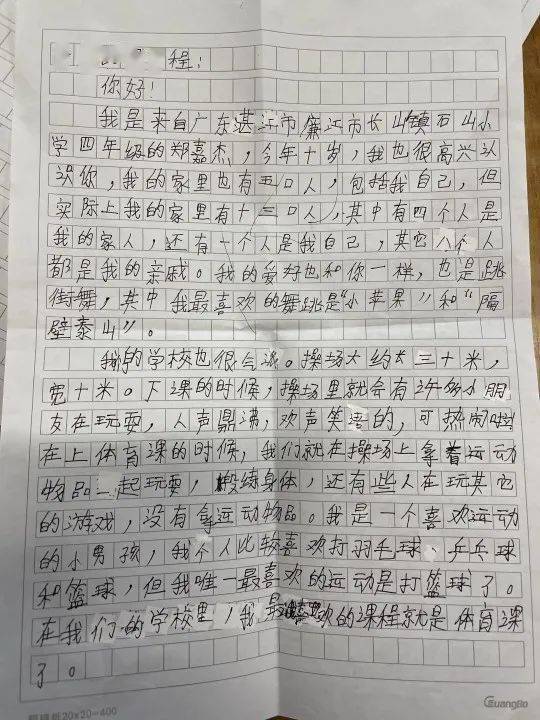 程：
你好！
我是来自广东湛江市廉江市长山镇石山小
学四年级的郑嘉杰，今年十岁，我也很高兴认
识你，我的家里也有五口人，包括我自己，但
实际上我的家里有十三口人，其中有四个人是
我的家人，还有一个人是我自己，其它八个人
都是我的亲戚。我的爱好也和你一样，也是跳
街舞，其中我最喜欢的舞跳是“小苹果”和“隔
壁泰山”。
我的学校也很。操场大约长三十米，
宽十米。下课的时候，操场里就会有许多小朋
友在玩耍，人声鼎沸，欢声笑语的，可热闹啦
在上体育课的时候，我们就在操场上拿着运动
物品一起玩耍，搬练身体，还有些人在玩其它
的游戏，没有拿运动物品。我是一个喜欢运动
的小男孩，我个人比较喜欢打羽毛球、乒乓球
和篮球，但我唯一最喜欢的运动是打篮球了。
在我们的学校里，我最喜欢的课程就是体育课
了。
20×20=400
GuangBo